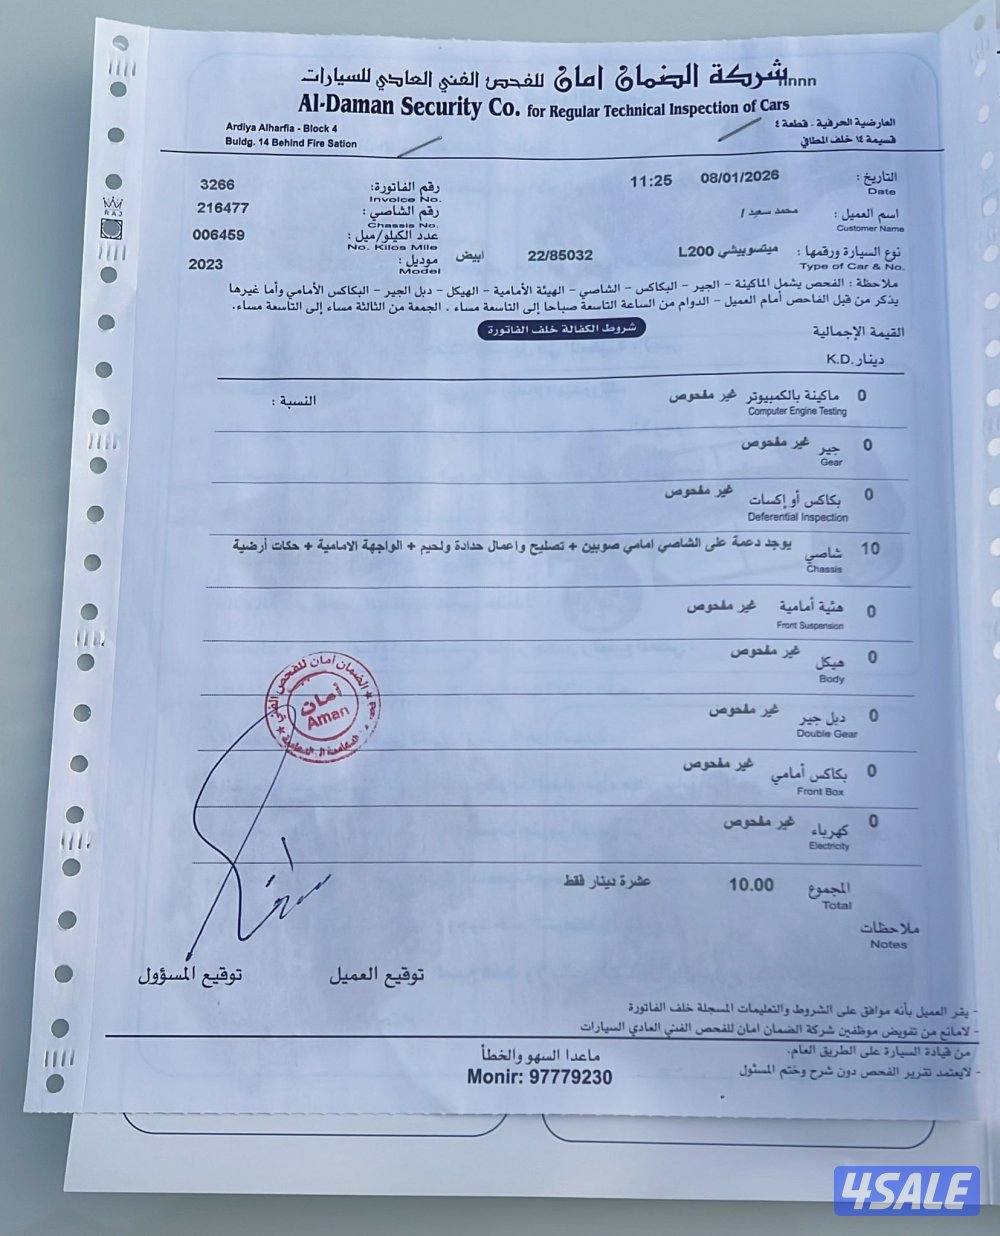 شركة الضمان امان للفحص الفني العادي للسيارات
Al-Daman Security Co. for Regular Technical Inspection of Cars
العارضية الحرفية - قطعة ٤
قسيمة ١٤ خلف المطافي
Ardiya Alharfia - Block 4
Buldg. 14 Behind Fire Sation
التاريخ : 08/01/2026 11:25
Date
رقم الفاتورة: 3266
Invoice No.
اسم العميل : محمد سعيد /
Customer Name
رقم الشاصي : 216477
Chassis No.
نوع السيارة ورقمها : ميتسوبيشي L200 22/85032 ابيض
Type of Car & No.
عدد الكيلو/ميل : 006459
No. Kilos Mile
موديل : 2023
Model
ملاحظة : الفحص يشمل الماكينة - الجير - البكاكس - الشاصي - الهيئة الأمامية - الهيكل - دبل الجير - البكاكس الأمامي وأما غيرها
يذكر من قبل الفاحص أمام العميل - الدوام من الساعة التاسعة صباحا إلى التاسعة مساء . الجمعة من الثالثة مساء إلى التاسعة مساء.
شروط الكفالة خلف الفاتورة
القيمة الإجمالية
دينار K.D.
0 ماكينة بالكمبيوتر غير مفحوص النسبة :
Computer Engine Testing
0 جير غير مفحوص
Gear
0 بكاكس أو إكسات غير مفحوص
Deferential Inspection
10 شاصي يوجد دعمة على الشاصي امامي صوبين + تصليح واعمال حدادة ولحيم + الواجهة الامامية + حكات أرضية
Chassis
0 هئية أمامية غير مفحوص
Front Suspension
0 هيكل غير مفحوص
Body
0 دبل جير غير مفحوص
Double Gear
0 بكاكس أمامي غير مفحوص
Front Box
0 كهرباء غير مفحوص
Electricity
المجموع 10.00 عشرة دينار فقط
Total
ملاحظات
Notes
الضمان أمان للفحص الفني
أمان
Aman
توقيع العميل
توقيع المسؤول
- يقر العميل بأنه موافق على الشروط والتعليمات المسجلة خلف الفاتورة
- لامانع من تفويض موظفين شركة الضمان امان للفحص الفني العادي السيارات
من قيادة السيارة على الطريق العام.
- لايعتمد تقرير الفحص دون شرح وختم المسئول
ماعدا السهو والخطأ
Monir: 97779230
4SALE